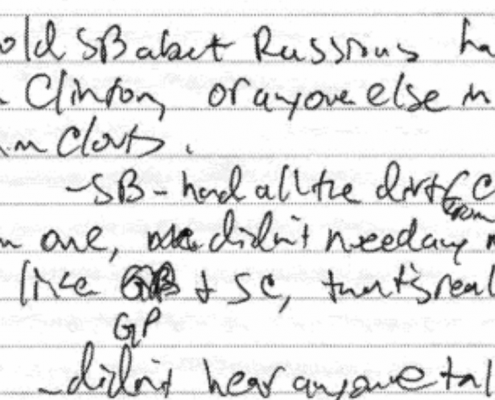 old SB about Russians ha
Clinton, or anyone else in
in Clouds.
-SB - had all the dirt
From
one, didn't need any
like GP & SC, that's real
GP
-didn't hear anyone tal